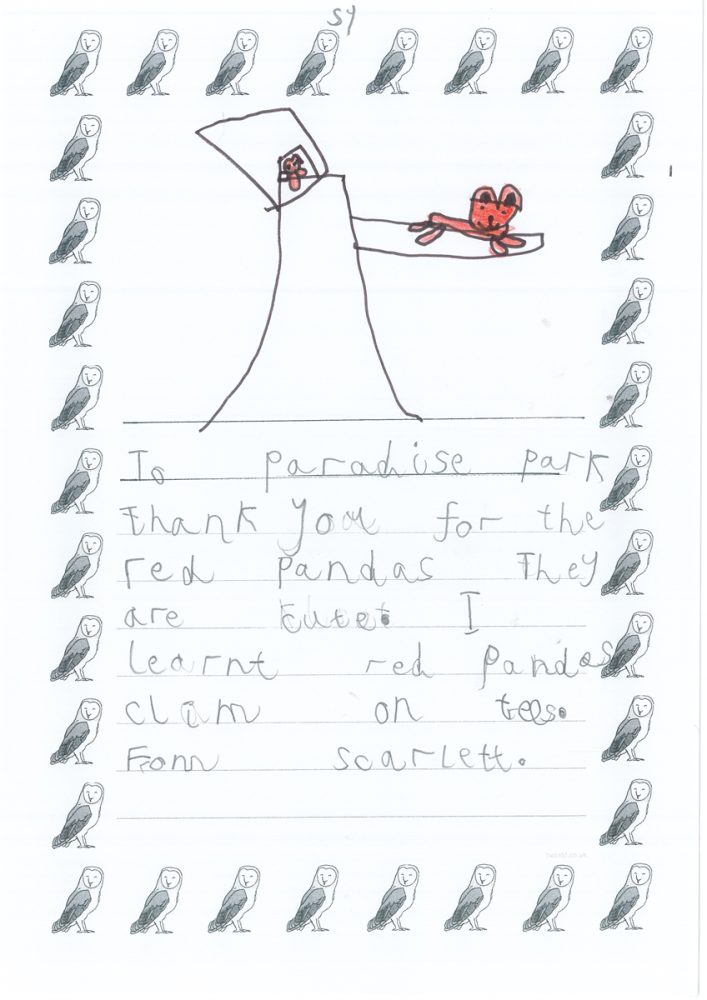 To paradise park
thank you for the
red pandas They
are cute. I
learnt red pandas
clim on tees.
From scarlett.